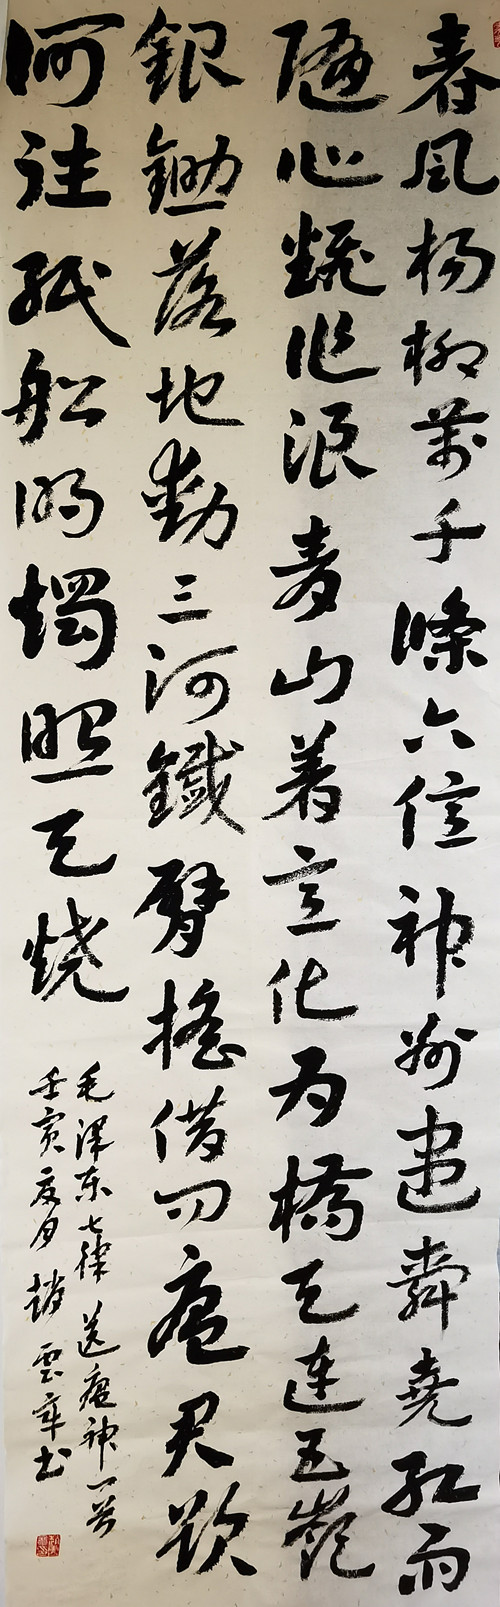 春風杨柳萬千條六億神州盡舜堯红雨
隨心翻作浪青山着意化为橋天连五嶺
銀鋤落地動三河鐵臂搖借问瘟君欲
何往紙船明燭照天燒
毛澤东七律送瘟神一首
壬寅夏月趙雲章书